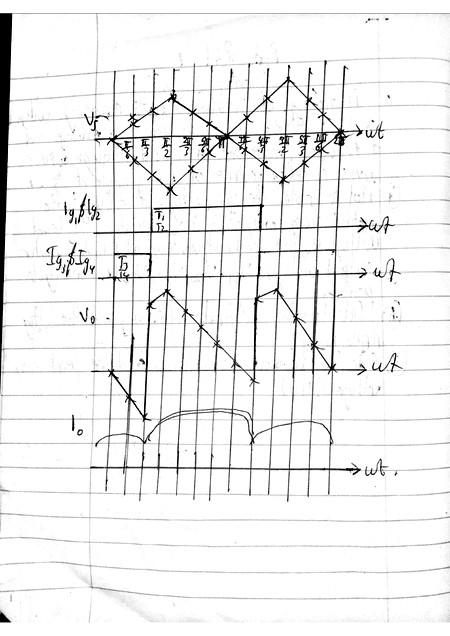 Vs
π/6 π/3 π/2 2π/3 5π/6 π 7π/6 4π/3 3π/2 5π/3 11π/6 2π
ωt
Ig1 & Ig2
T1
T2
ωt
Ig3 & Ig4
T3
T4
ωt
Vo
ωt
Io
ωt.